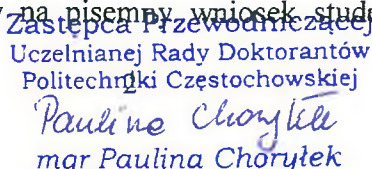 na pisemny wniosek stude
Zastępca Przewodniczącej
Uczelnianej Rady Doktorantów
Politechniki Częstochowskiej
2
Paulina Choryłek
mgr Paulina Choryłek